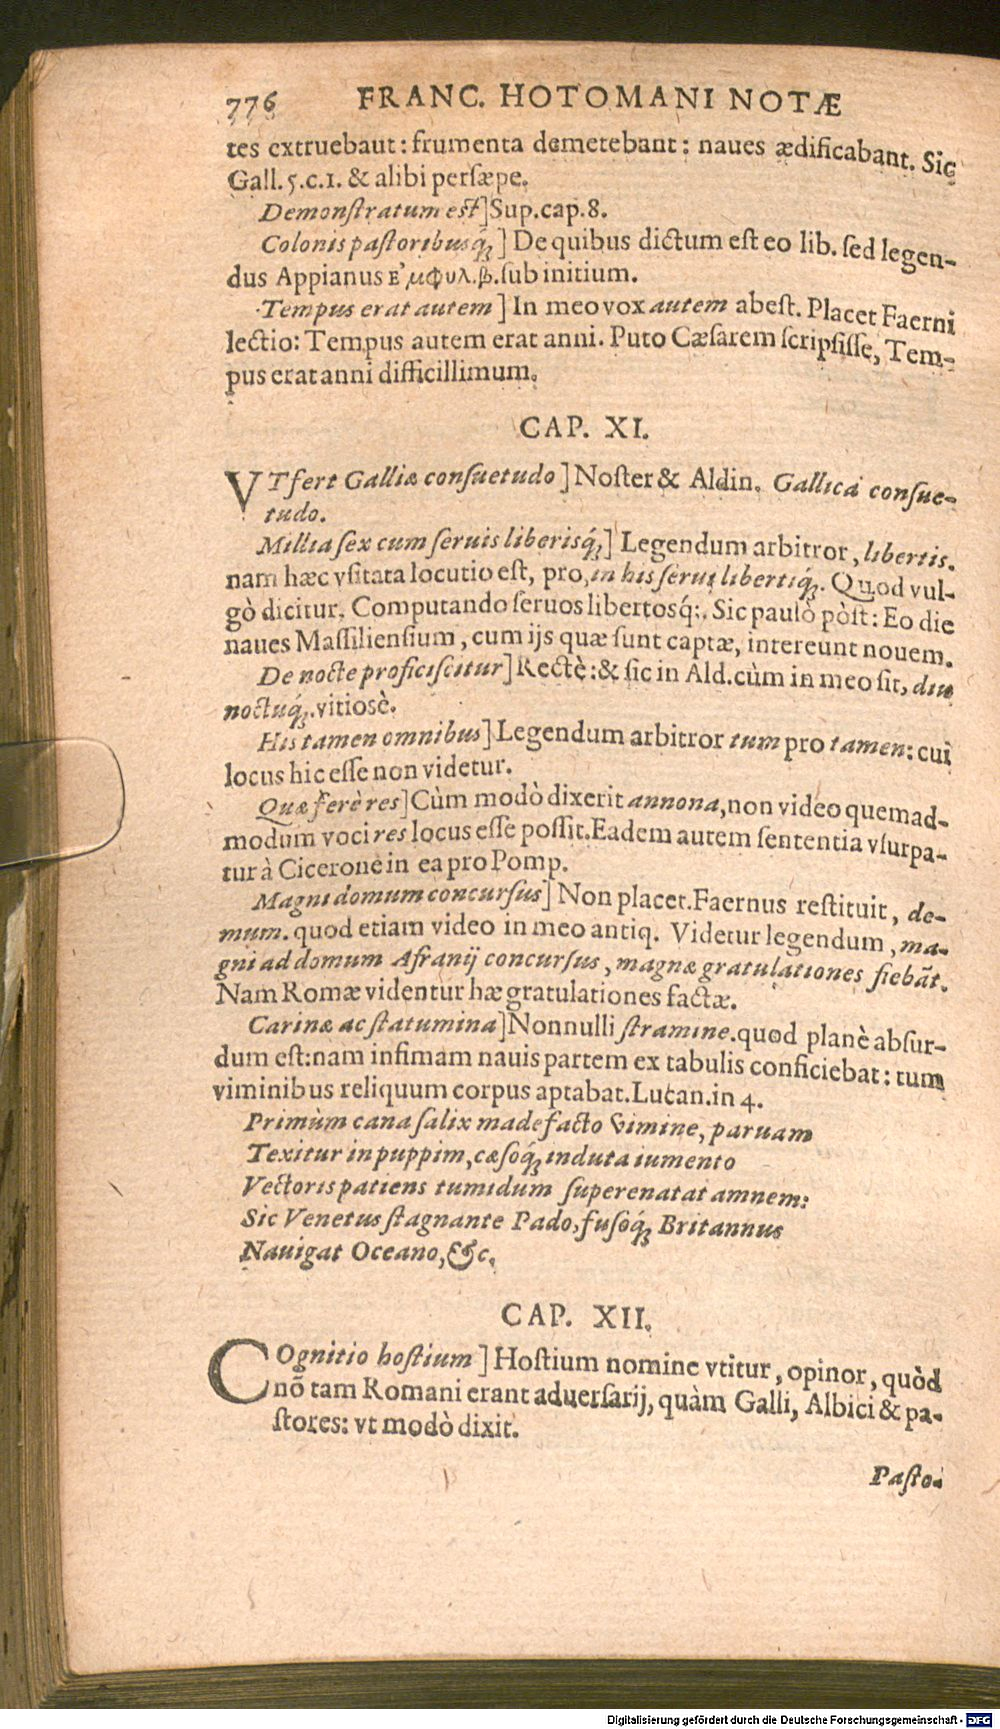 776 FRANC. HOTOMANI NOTÆ
tes extruebaut: frumenta demetebant: naues ædificabant. Sic
Gall. 5.c.1. & alibi persæpe.
Demonſtratum eſt] Sup.cap.8.
Colonis paſtoribusq́;] De quibus dictum eſt eo lib. ſed legen-
dus Appianus ἐμφυλ.β. ſub initium.
Tempus erat autem] In meo vox autem abeſt. Placet Faerni
lectio: Tempus autem erat anni. Puto Cæſarem ſcripſiſſe, Tem-
pus erat anni difficillimum.
CAP. XI.
VT fert Galliæ conſuetudo] Noſter & Aldin. Gallica conſue-
tudo.
Millia ſex cum ſeruis liberisq́;] Legendum arbitror, libertis.
nam hæc vſitata locutio eſt, pro, in his ſerui libertiq́;. Quod vul-
gò dicitur, Computando ſeruos libertosq́;. Sic paulò pòſt: Eo die
naues Maſſilienſium, cum ijs quæ ſunt captæ, intereunt nouem.
De nocte proficiſcitur] Rectè: & ſic in Ald. cùm in meo ſit, diu
noctuq́;. vitiosè.
His tamen omnibus] Legendum arbitror tum pro tamen: cui
locus hic eſſe non videtur.
Quæ ferè res] Cùm modò dixerit annona, non video quemad-
modum voci res locus eſſe poſſit. Eadem autem ſententia vſurpa-
tur à Cicerone in ea pro Pomp.
Magni domum concurſus] Non placet. Faernus reſtituit, de-
mum. quod etiam video in meo antiq. Videtur legendum, ma-
gni ad domum Afranij concurſus, magnæ gratulationes fiebāt.
Nam Romæ videntur hæ gratulationes factæ.
Carinæ ac ſtatumina] Nonnulli ſtramine. quod planè abſur-
dum eſt: nam infimam nauis partem ex tabulis conficiebat: tum
viminibus reliquum corpus aptabat. Lucan. in 4.
Primùm cana ſalix madefacto vimine, paruam
Texitur in puppim, cæſoq́; induta iumento
Vectoris patiens tumidum ſuperenatat amnem:
Sic Venetus ſtagnante Pado, fuſoq́; Britannus
Nauigat Oceano, &c.
CAP. XII.
COgnitio hoſtium] Hoſtium nomine vtitur, opinor, quòd
nō tam Romani erant aduerſarij, quàm Galli, Albici & pa-
ſtores: vt modò dixit.
Paſto-
Digitalisierung gefördert durch die Deutsche Forschungsgemeinschaft - DFG